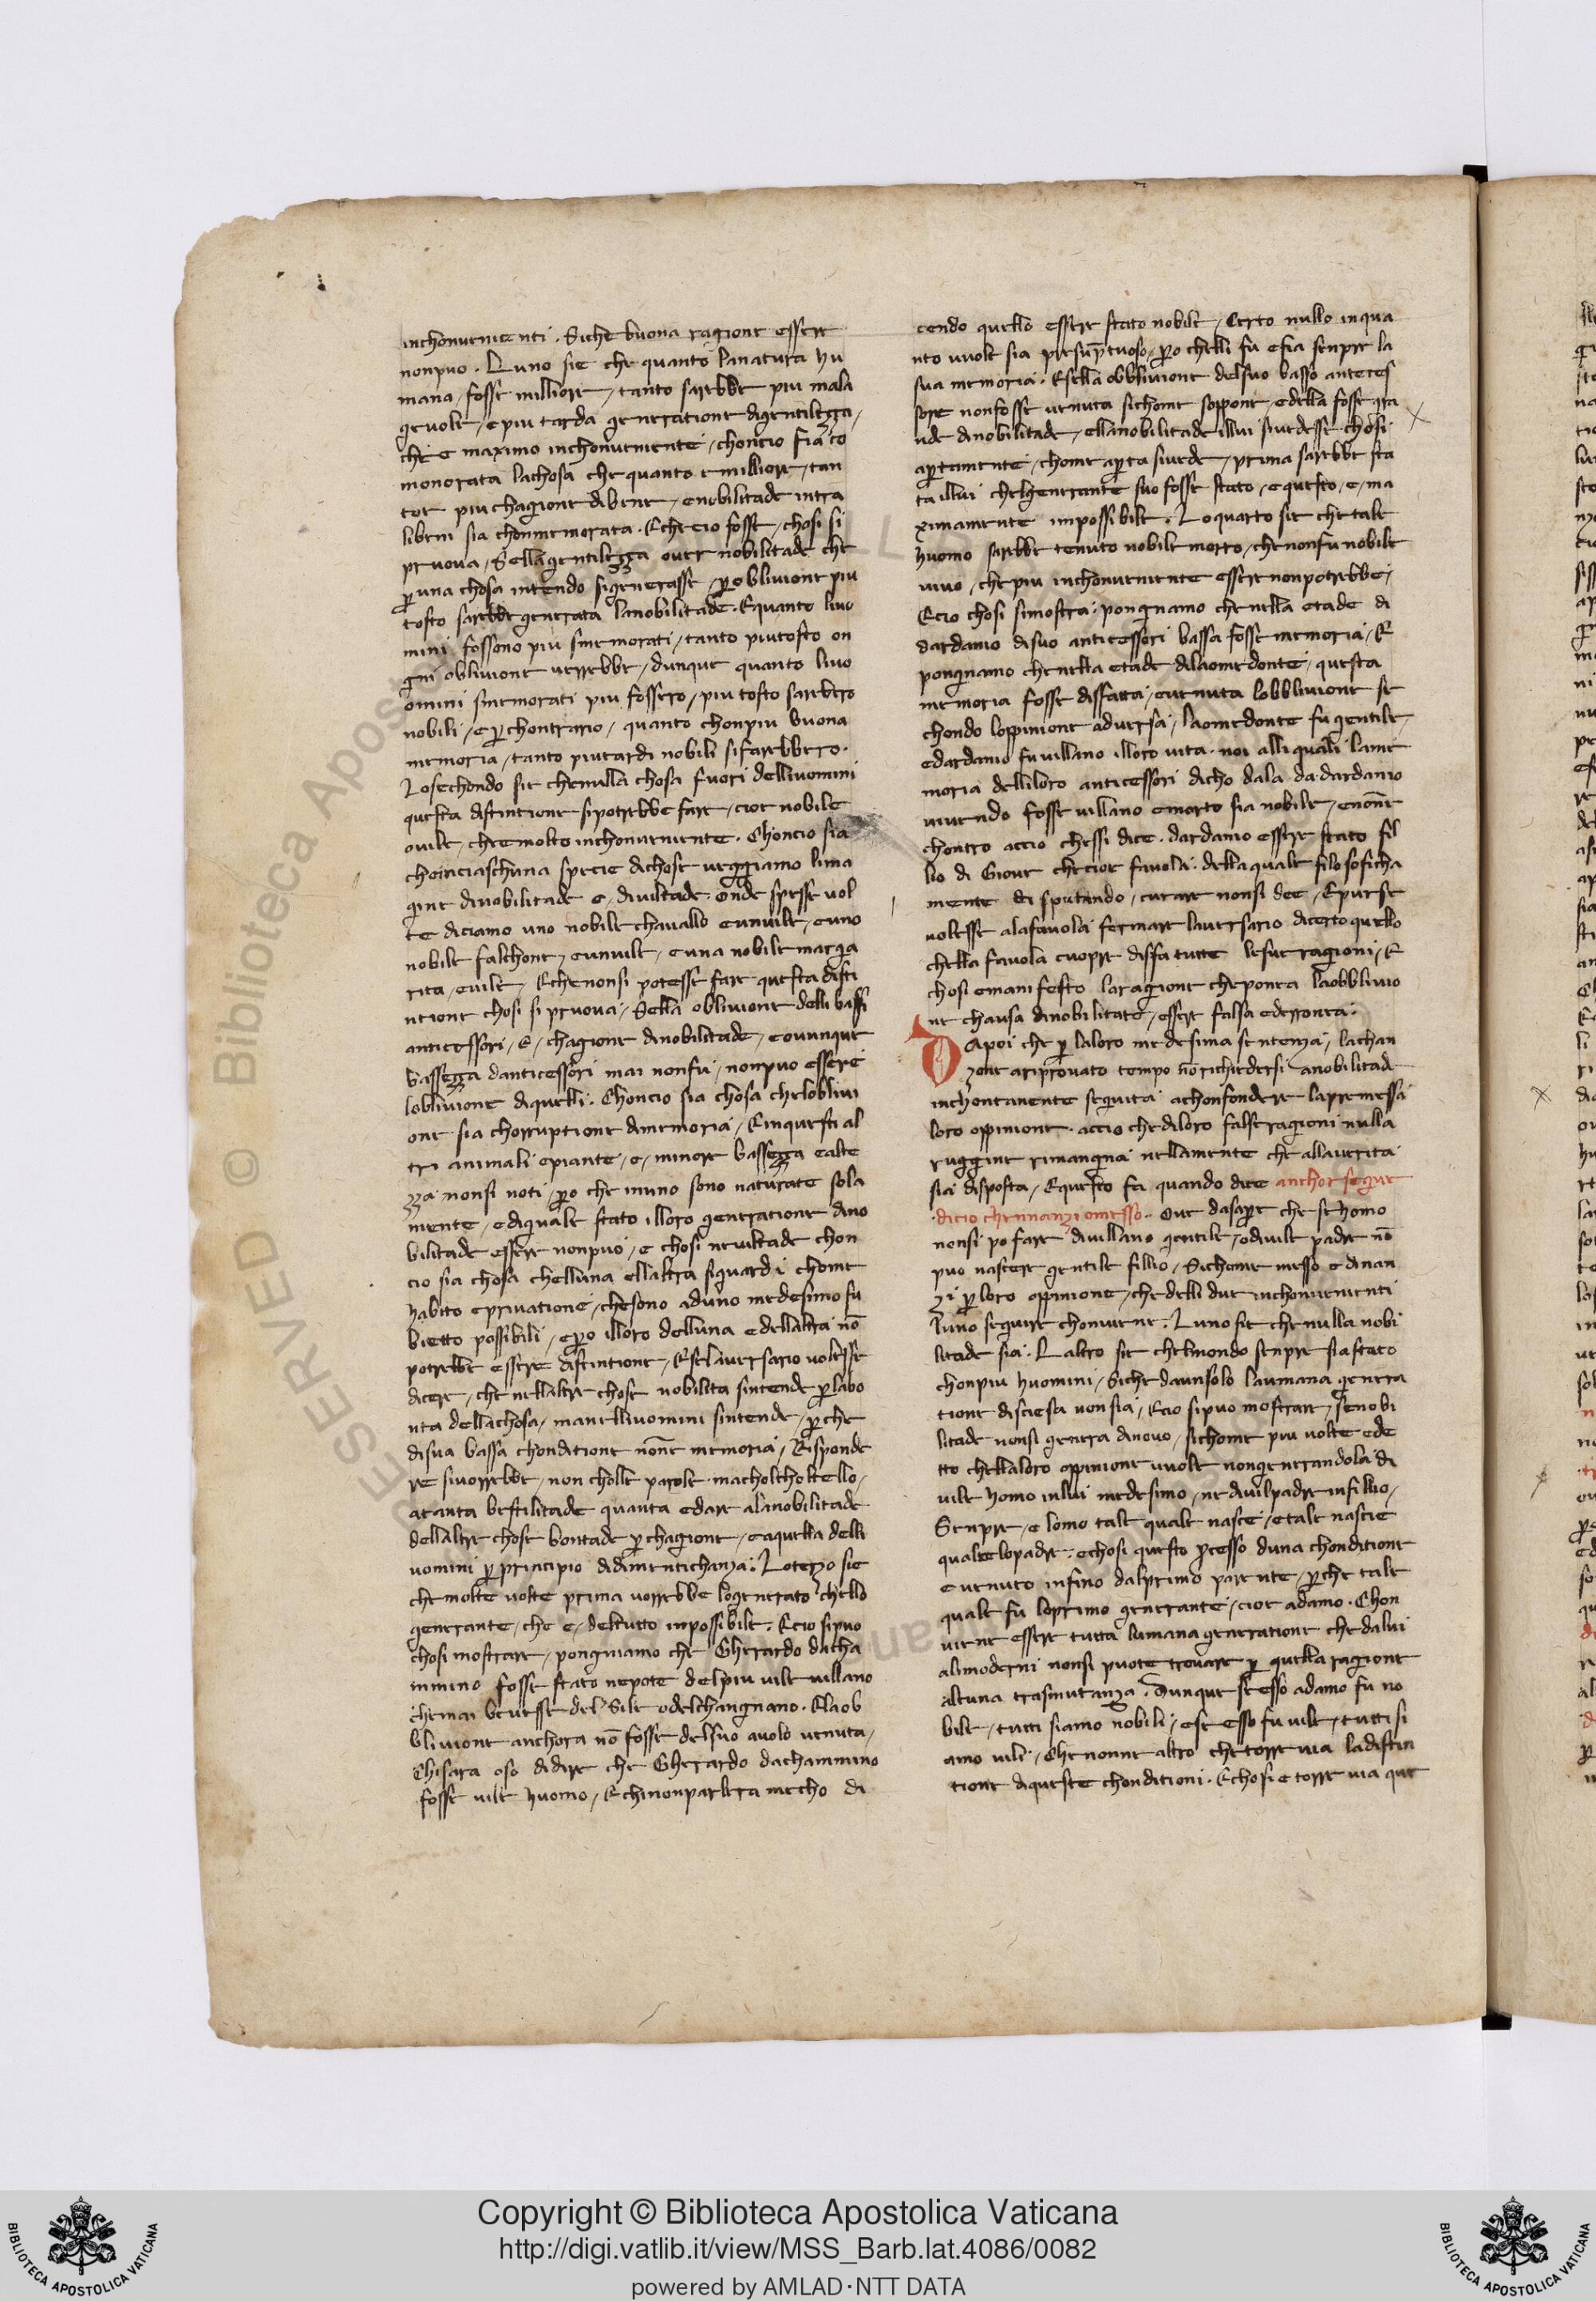 inchonuenie nti. Siche buona ragione essere
nonpuo. Luno sie che quanto lanatura hu
mana / fosse milliore / tanto sarebbe piu mala
geuole / e piu tarda generatione digentilezza /
che e maximo inchonueniente / choncio sia co
monorata lachosa che quanto e milliore / tan
toe piu chagione dibene / enobilitade intra
libeni sia chonmemorata. Eche cio fosse / chosi si
pruova / Sella gentilezza ouer nobilitade che
p una chosa intendo sigenerasse / p oblivione piu
tosto sarebbe generata lanobilitade. Equanto liuo
mini fossono piu smemorati / tanto piutosto on
gni oblivione uerrebbe / dunque quanto liuo
omini smemorati piu fossero / piu tosto sarebero
nobili / e p chontrario / quanto chonpiu buona
memoria / tanto piutardi nobili sifarebbero.
Losechondo sie chenulla chosa fuori delliuomini
questa distintione sipotrebbe fare / cioe nobile
ouile / chemolto inchonueniente. Choncio sia
cheinciaschuna spetie dichose ueggiamo lima
gine dinobilitade e / diuiltade. Onde spesse uol
te diciamo uno nobile chauallo eunuile / euno
nobile falchone / eunuile / euna nobile marga
rita / euile / Eche nonsi potesse fare questa disti
ntione chosi si pruova / Sella oblivione delli bassi
anticessori / e / chagione dinobilitade / eouunque
bassezza danticessori mai nonfu / nonpuo essere
loblivione diquelli. Choncio sia chosa cheloblivi
one sia chorruptione dimemoria / Einquesti al
tri animali epiante / e / minore bassezza ealte
zza nonsi noti / po che inuno sono naturate sola
mente / ediquale stato illoro generatione dino
bilitade essere nonpuo / e chosi neuiltade chon
cio sia chosa chelluna ellaltra siguardi chome
habito eprivatione / chesono aduno medesimo su
bietto possibili / e po illoro delluna edellaltra nō
potrebbe essere distintione / Esel auersario uolesse
dicere / che nellaltre chose nobilita sintende p labo
nta dellachosa / manelliuomini sintende / p che
disua bassa chonditione nonne memoria / Risponde
re siuorrebbe / non cholle parole. machol choltello /
atanta bestilitade quanta edare alanobilitade
dellaltre chose bontade p chagione / eaquella delli
uomini p principio didimentichanza. Loterzo sie
che molte uolte prima uerrebbe logenerato chello
generante / che e / deltutto impossibile. Ecio sipuo
chosi mostrare / pongniamo che Gherardo dacha
mmino fosse stato nepote delpiu uile uillano
chemai beuesse del Sile odelchangnano. Elaob
blivione anchora nō fosse delsuo auolo uenuta /
Chisara oso didire che Gherardo dachammino
fosse uile huomo / Echinonparlera mecho di
cendo quello essere stato nobile / Certo nullo inqua
nto uuole sia presuptuoso / po chelli fu efia senpre la
sua memoria. Esella obblivione delsuo basso anteces
sore nonfosse uenuta sichome soppone / edella fosse gra
nde dinobilitade / ellanobilitade illui siuedesse chosi
apertamente / chome aperta siuede / prima sarebbe sta
ta illui chelgenerante suo fosse stato / e questo / e / ma
ximamente impossibile. Loquarto sie che tale
huomo sarebbe tenuto nobile morto / che nonfu nobile
uiuo / che piu inchonueniente essere nonpotrebbe /
Ecio chosi simostra: pongnamo chenella etade di
dardamo disuo anticessori bassa fosse memoria / E
pongnamo chenella etade dilaomedonte / questa
memoria fosse disfatta / euenuta lobblivione se
chondo loppinione aduersa / laomedonte fu gentile /
edardamo fu uillano illoro uita. noi alli quali lame
moria delliloro anticessori dicho dala da dardamo
uiuendo fosse uillano emorto sia nobile / enonne
chontro accio chessi dice. dardamo essere stato fil
lio di Gioue che cioe favola. dellaquale filosoficha
mente di sputando / curare nonsi dee / Epurse
uolesse alafauola fermare lauersario dicerto quello
chella fauola cuopre disfa tutte lesue ragioni / E
chosi emanifesto laragione cheponea laobblivio
ne chausa dinobilitate / essere falsa ederronea.
Dapoi che p laloro medesima sentenza / lachan
zone ariprouato tempo nō richiedersi anobilitade
inchontanente seguita achonfondere lapremessa
loro oppinione. accio che diloro false ragioni nulla
ruggine rimangna nellamente che allaverita
sia disposta / Equesto fa quando dice anchor segue
dicio chennanzi omesso. Oue dasape che se homo
nonsi po fare diuillano gentile / odiuile padre nō
puo nascere gentile fillio / Sichome messo e dinan
zi p loro oppinione / che delli due inchonuenienti
luno seguire chonuene. Luno sie che nulla nobi
litade sia. Laltro sie chelmondo senpre sia stato
chonpiu huomini / Siche daunsolo laumana genera
tione disciesa non sia / Ecio sipuo mostrare / senobi
litade nonsi genera dinouo / sichome piu uolte ede
tto chellaloro oppinione uuole nongenerandola di
uile homo inlui medesimo / ne diuil padre infillio /
Senpre / e lomo tale quale nasce / etale nascie
qualee lopadre. echosi questo pcesso duna chonditione
e uenuto infino dalprimo parente / p che tale
quale fu loprimo generante / cioe adamo. Chon
uiene essere tutta lumana generatione che dalui
alimoderni nonsi puote trouare p quella ragione
alcuna trasmutanza. Dunque sesso adamo fu no
bile / tutti siamo nobili / ese esso fu uile / tutti si
amo uili / Che nonne altro che torre uia ladistin
tione diqueste chonditioni. Echosi e torre uia que
Copyright © Biblioteca Apostolica Vaticana
http://digi.vatlib.it/view/MSS_Barb.lat.4086/0082
powered by AMLAD·NTT DATA
BIBLIOTECA APOSTOLICA VATICANA
BIBLIOTECA APOSTOLICA VATICANA